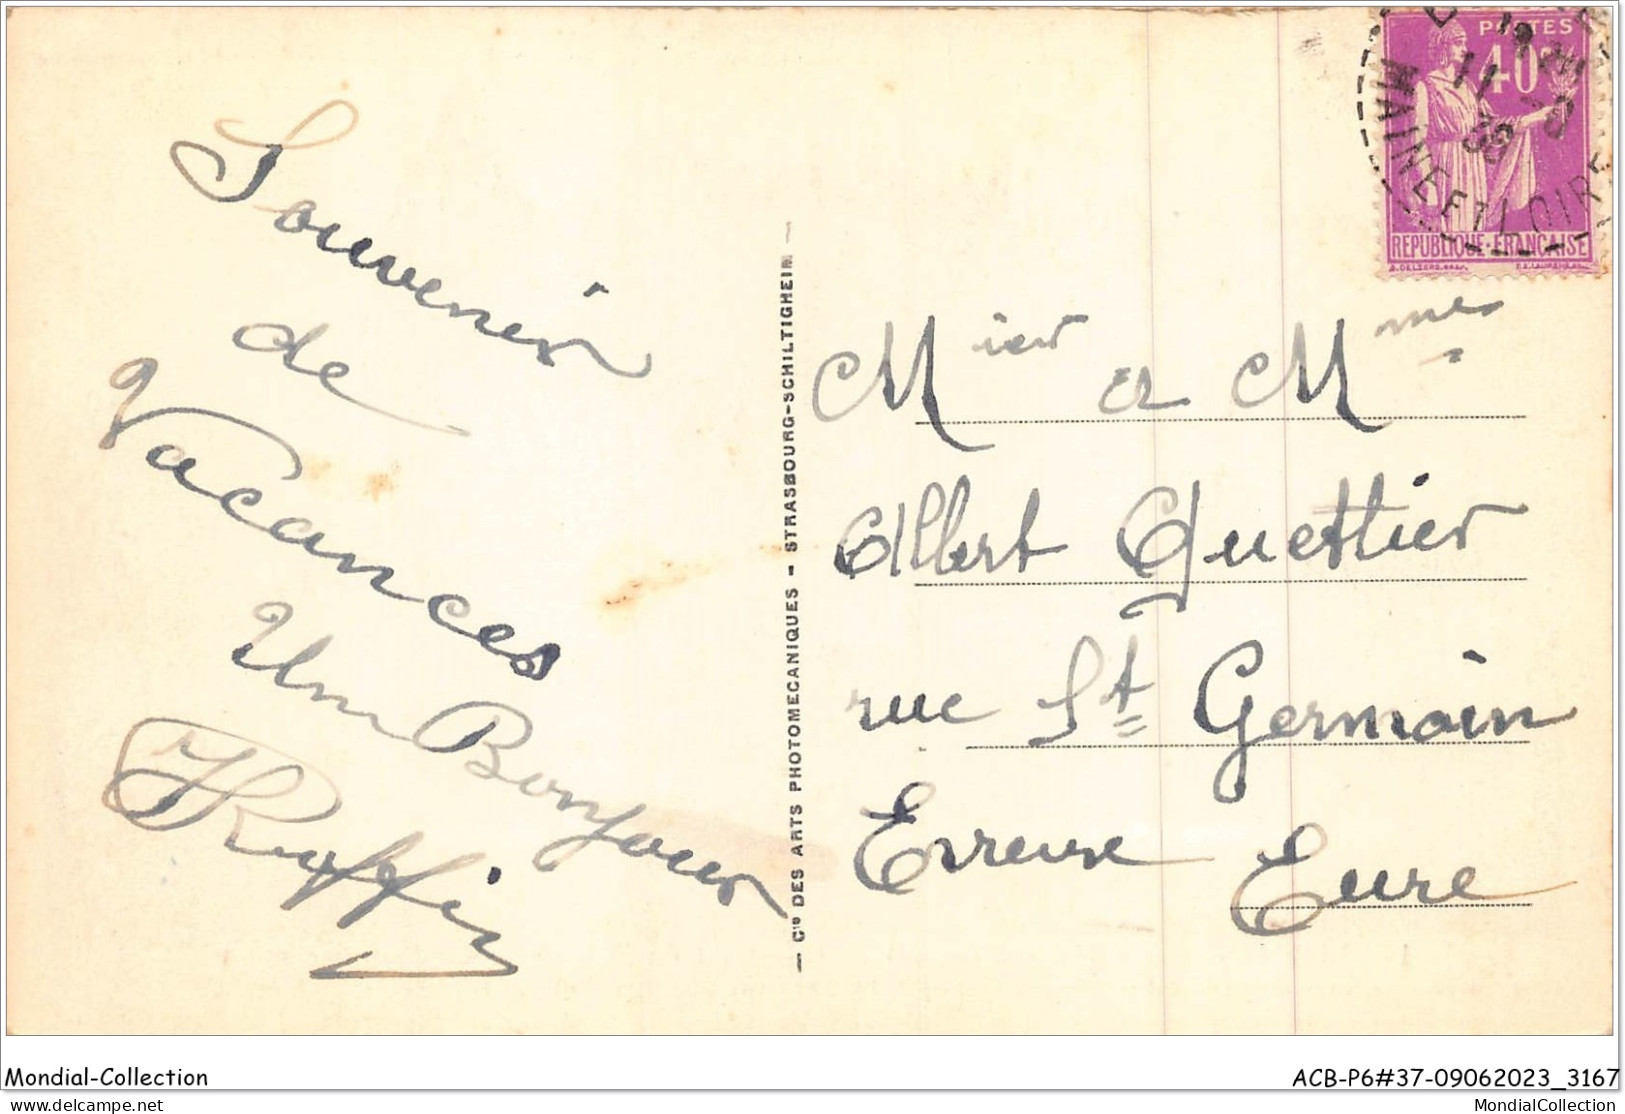 Souvenir
de
Vacances
Un Bonjour
Cie DES ARTS PHOTOMECANIQUES - STRASBOURG-SCHILTIGHEIM
POSTES
40c
REPUBLIQUE-FRANCAISE
MAINE ET LOIRE
11 -9
38
Msieur et Mme
Albert Quettier
rue St Germain
Eure
Mondial-Collection
ACB-P6#37-09062023_3167
delcampe.net
MondialCollection